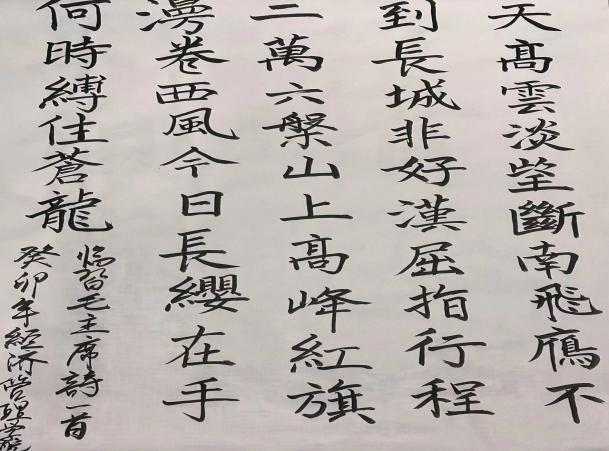 天高雲淡望斷南飛鴈不
到長城非好漢屈指行程
二萬六槃山上髙峰紅旗
漫卷西風今日長纓在手
何時縛住蒼龍
临習毛主席詩一首
癸卯年經济管理学院